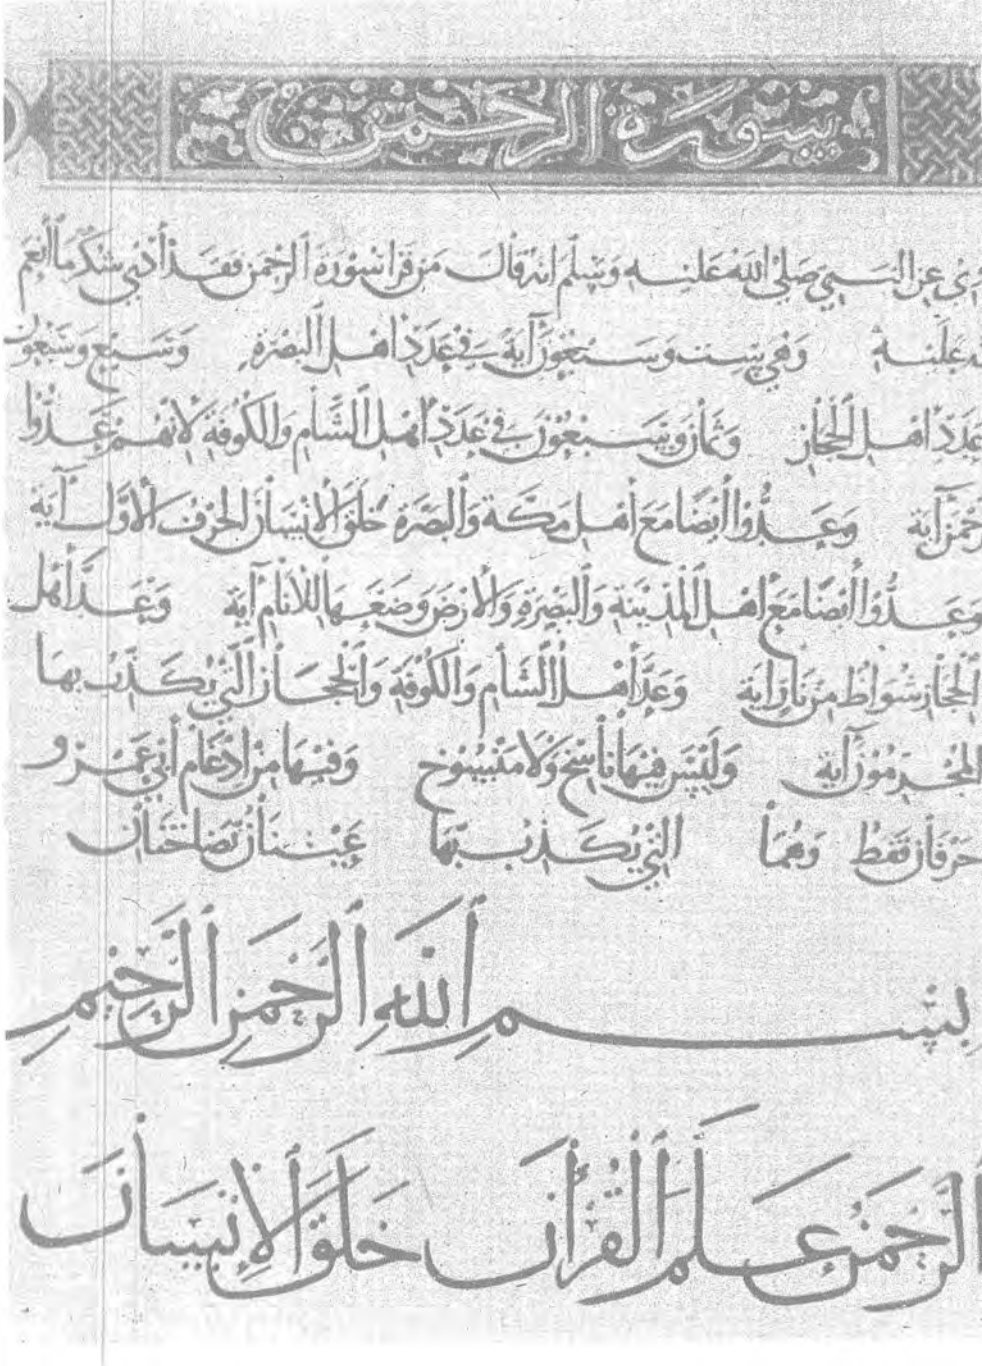 سورة الرحمن
عن النبي صلى الله عليه وسلم انه قال من قرا سورة الرحمن فقد أدى شكر ما أنعم
عليه وهي ست وسبعون آية في عدد اهل البصرة وسبع وسبعون
عدد اهل الحجاز وثمان وسبعون في عدد اهل الشام والكوفة لانهم عدوا
آية وعدوا أيضا مع أهل مكة والبصرة خلق الانسان الحرف الأول آية
وعدوا أيضا مع اهل المدينة والبصرة والأرض وضعها للأنام آية وعد أهل
الحجاز شواظ من نار آية وعد أهل الشام والكوفة والحجاز التي يكذب بها
المجرمون آية وليس فيها ناسخ ولا منسوخ وفيها من ادغام أبي عمرو
حرفان فقط وهما التي يكذب بها عينان نضاختان
بِسْمِ اللَّهِ الرَّحْمَنِ الرَّحِيمِ
الرَّحْمَنُ عَلَّمَ الْقُرْأَنَ خَلَقَ الْإِنْسَانَ